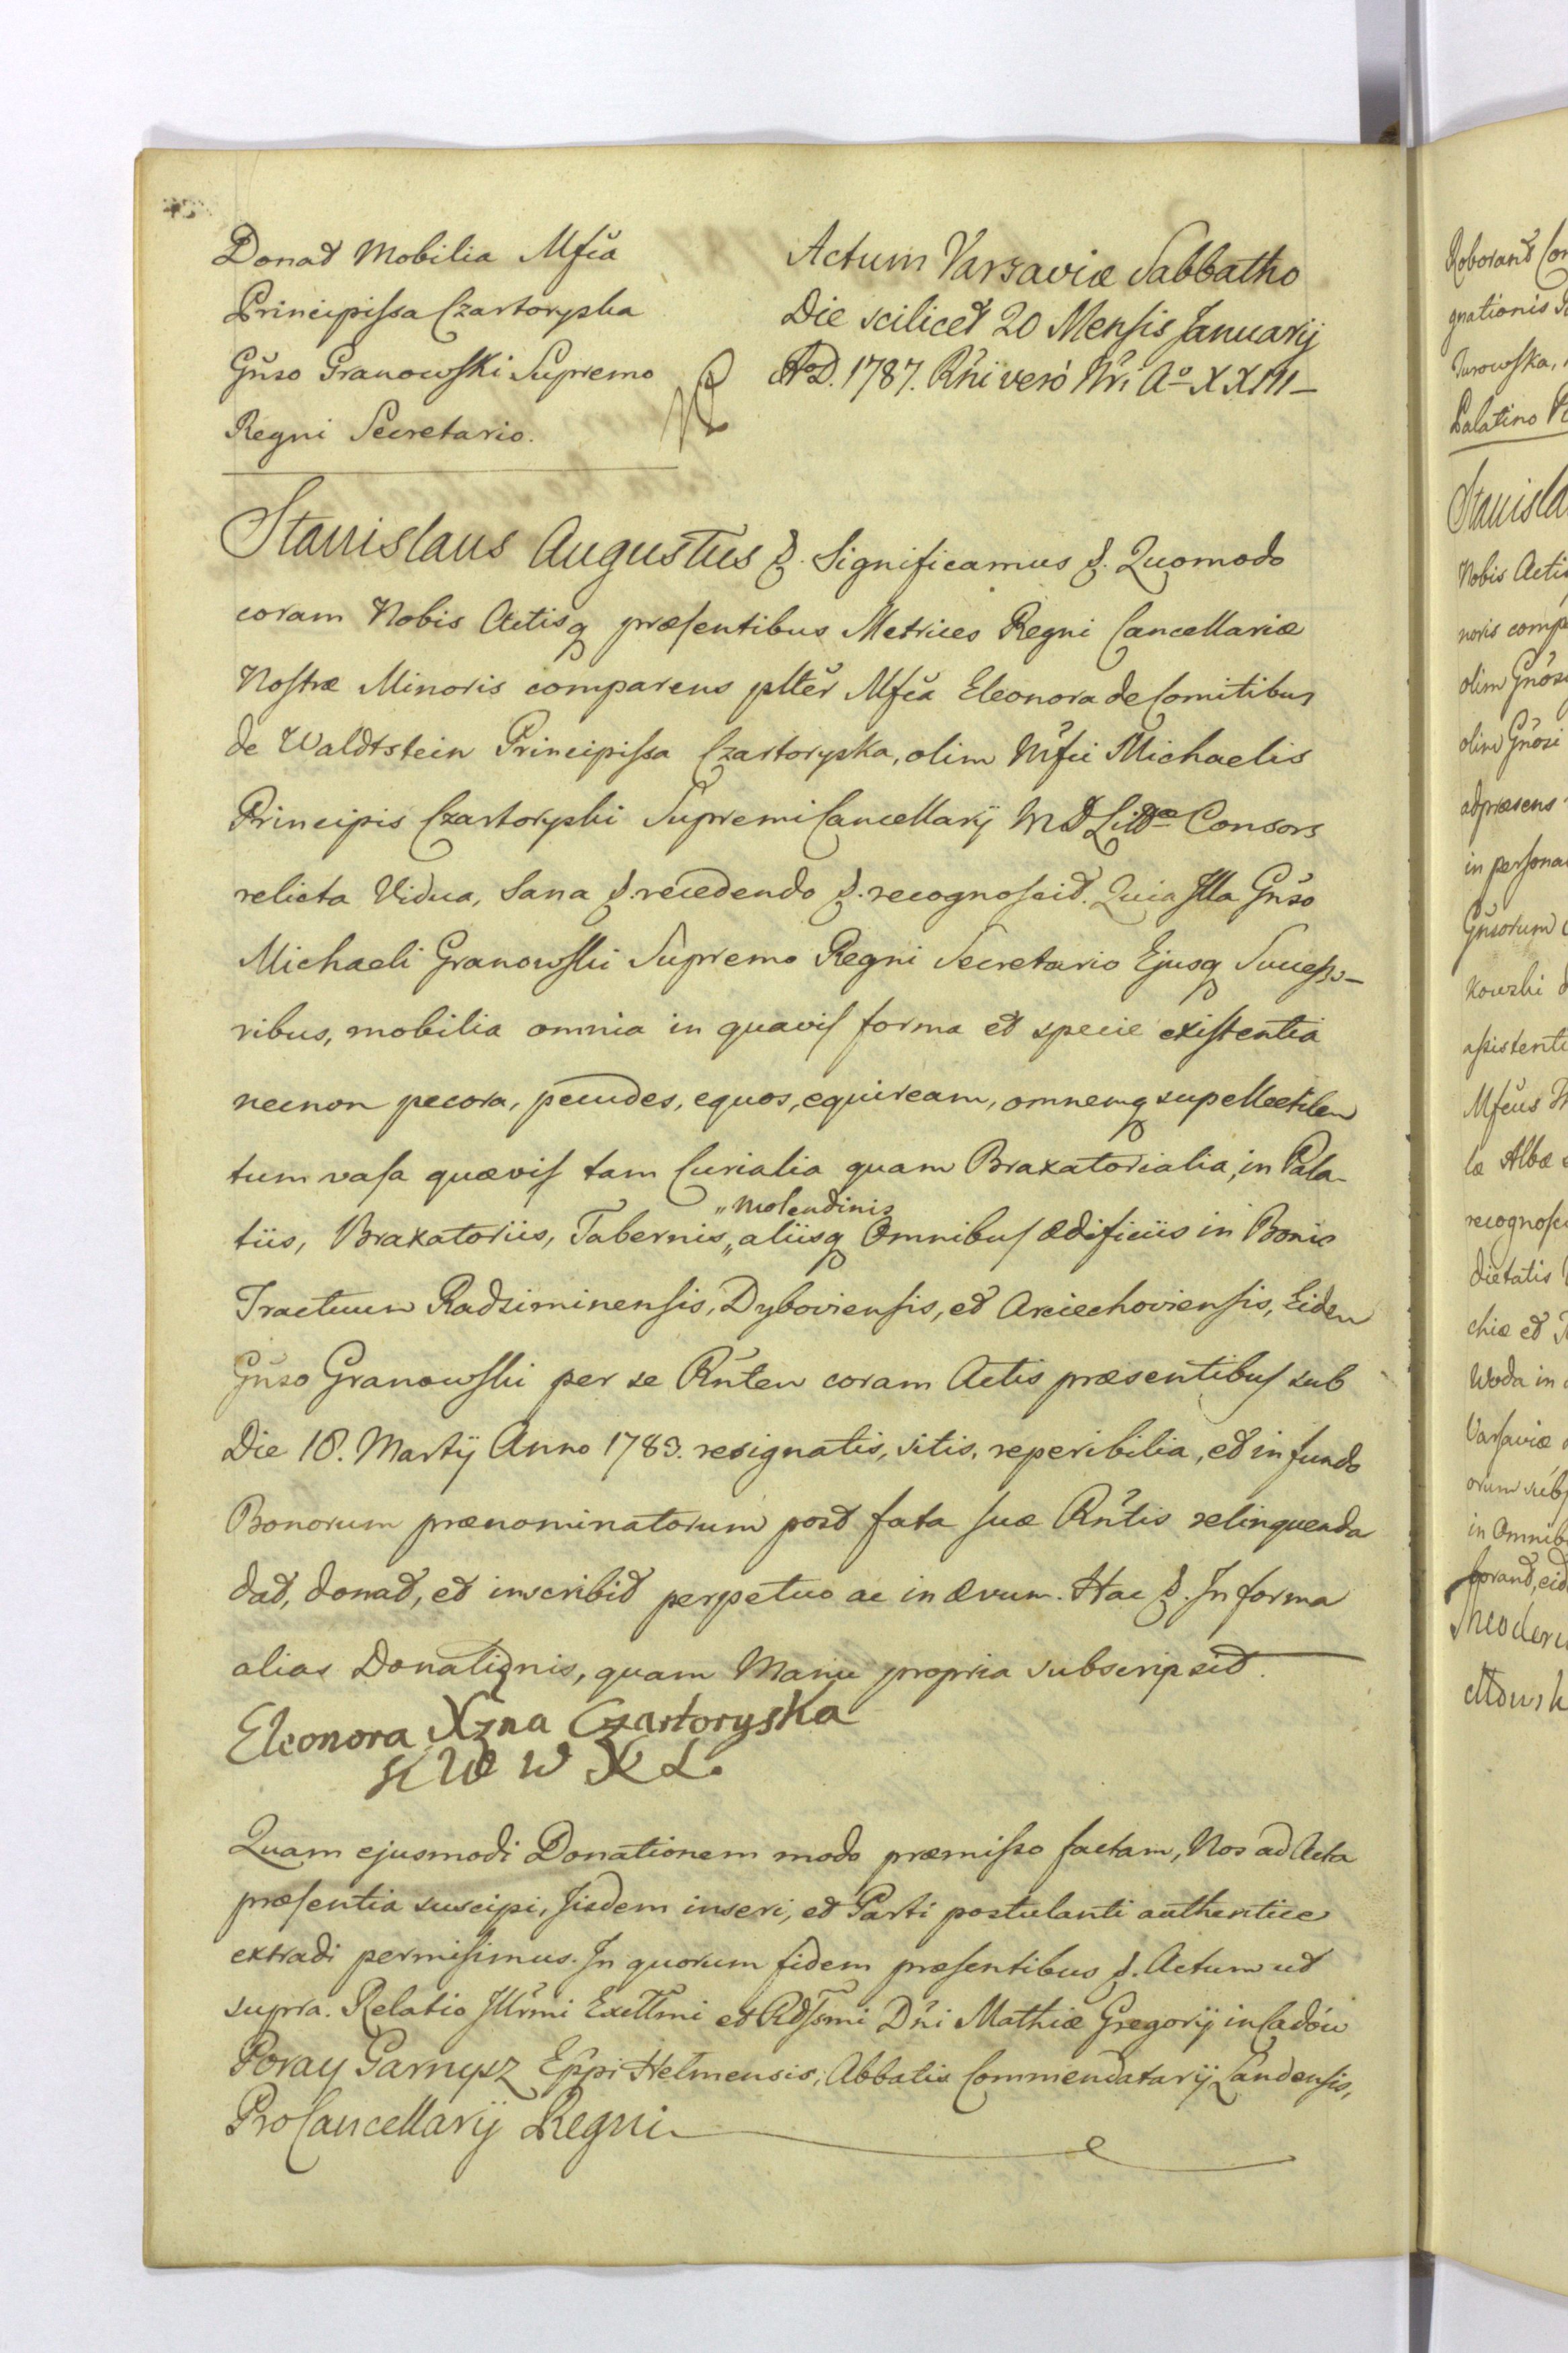 Donat Mobilia Mfca
Principissa Czartoryska
Gnso Granowski Supremo
Regni Secretario.
Actum Varsaviæ Sabbatho
Die scilicet 20 Mensis Januarij
AoD. 1787. Rñi veró Nri Ao XXIII_
Stanislaus Augustus &. Significamus &. Quomodo
coram Nobis Actisq præsentibus Metrices Regni Cancellariæ
Nostræ Minoris comparens plter Mfca Eleonora de Comitibus
de Waldtstein Principissa Czartoryska, olim Mfci Michaelis
Principis Czartoryski Supremi Cancellarij M D Littæ Consors
relicta Vidua, Sana &. recedendo &. recognoscit. Quia Illa Gnso
Michaeli Granowski Supremo Regni Secretario Ejusq Successo-
ribus, mobilia omnia in quavis forma et specie existentia
necnon pecora, pecudes, equos, equiream, omnemq supellectilem
tum vasa quævis tam Curialia quam Braxatorialia, in Pala-
tiis, Braxatoriis, Tabernis, „Molendinis aliisq Omnibus Ædificiis in Bonis
Tractuum Radziminensis, Dyboviensis, et Arciechoviensis, Eidem
Gnso Granowski per se Rñtem coram Actis præsentibus sub
Die 18. Martij Anno 1783. resignatis, sitis, reperibilia, et in fundo
Bonorum prænominatorum post fata suæ Rñtis relinquenda
dat, donat, et inscribit perpetuo ac in Ævum. Hac &. In forma
alias Donationis, quam Manu propria subscripsit.
Eleonora Xzna Czartoryska
K W W X L.
Quam ejusmodi Donationem modo præmisso factam, Nos ad Acta
præsentia suscipi, Iisdem inseri, et Parti postulanti authentice
extradi permisimus. In quorum fidem præsentibus &. Actum ut
supra. Relatio Illrmi Excllmi et Rdssmi Dñi Mathiæ Gregorij in Cadów
Poray Garnysz Eppi Helmensis, Abbatis Commendatarij Landensis,
ProCancellarij Regni
Roborant
gnationis
Turowska,
Palatino
Nobis Actis
olim
olim Gnosi
adpræsens
in persona
Gnsorum
assistenti
læ Albæ
dietatis
chiæ et
Woda in
Varsaviæ